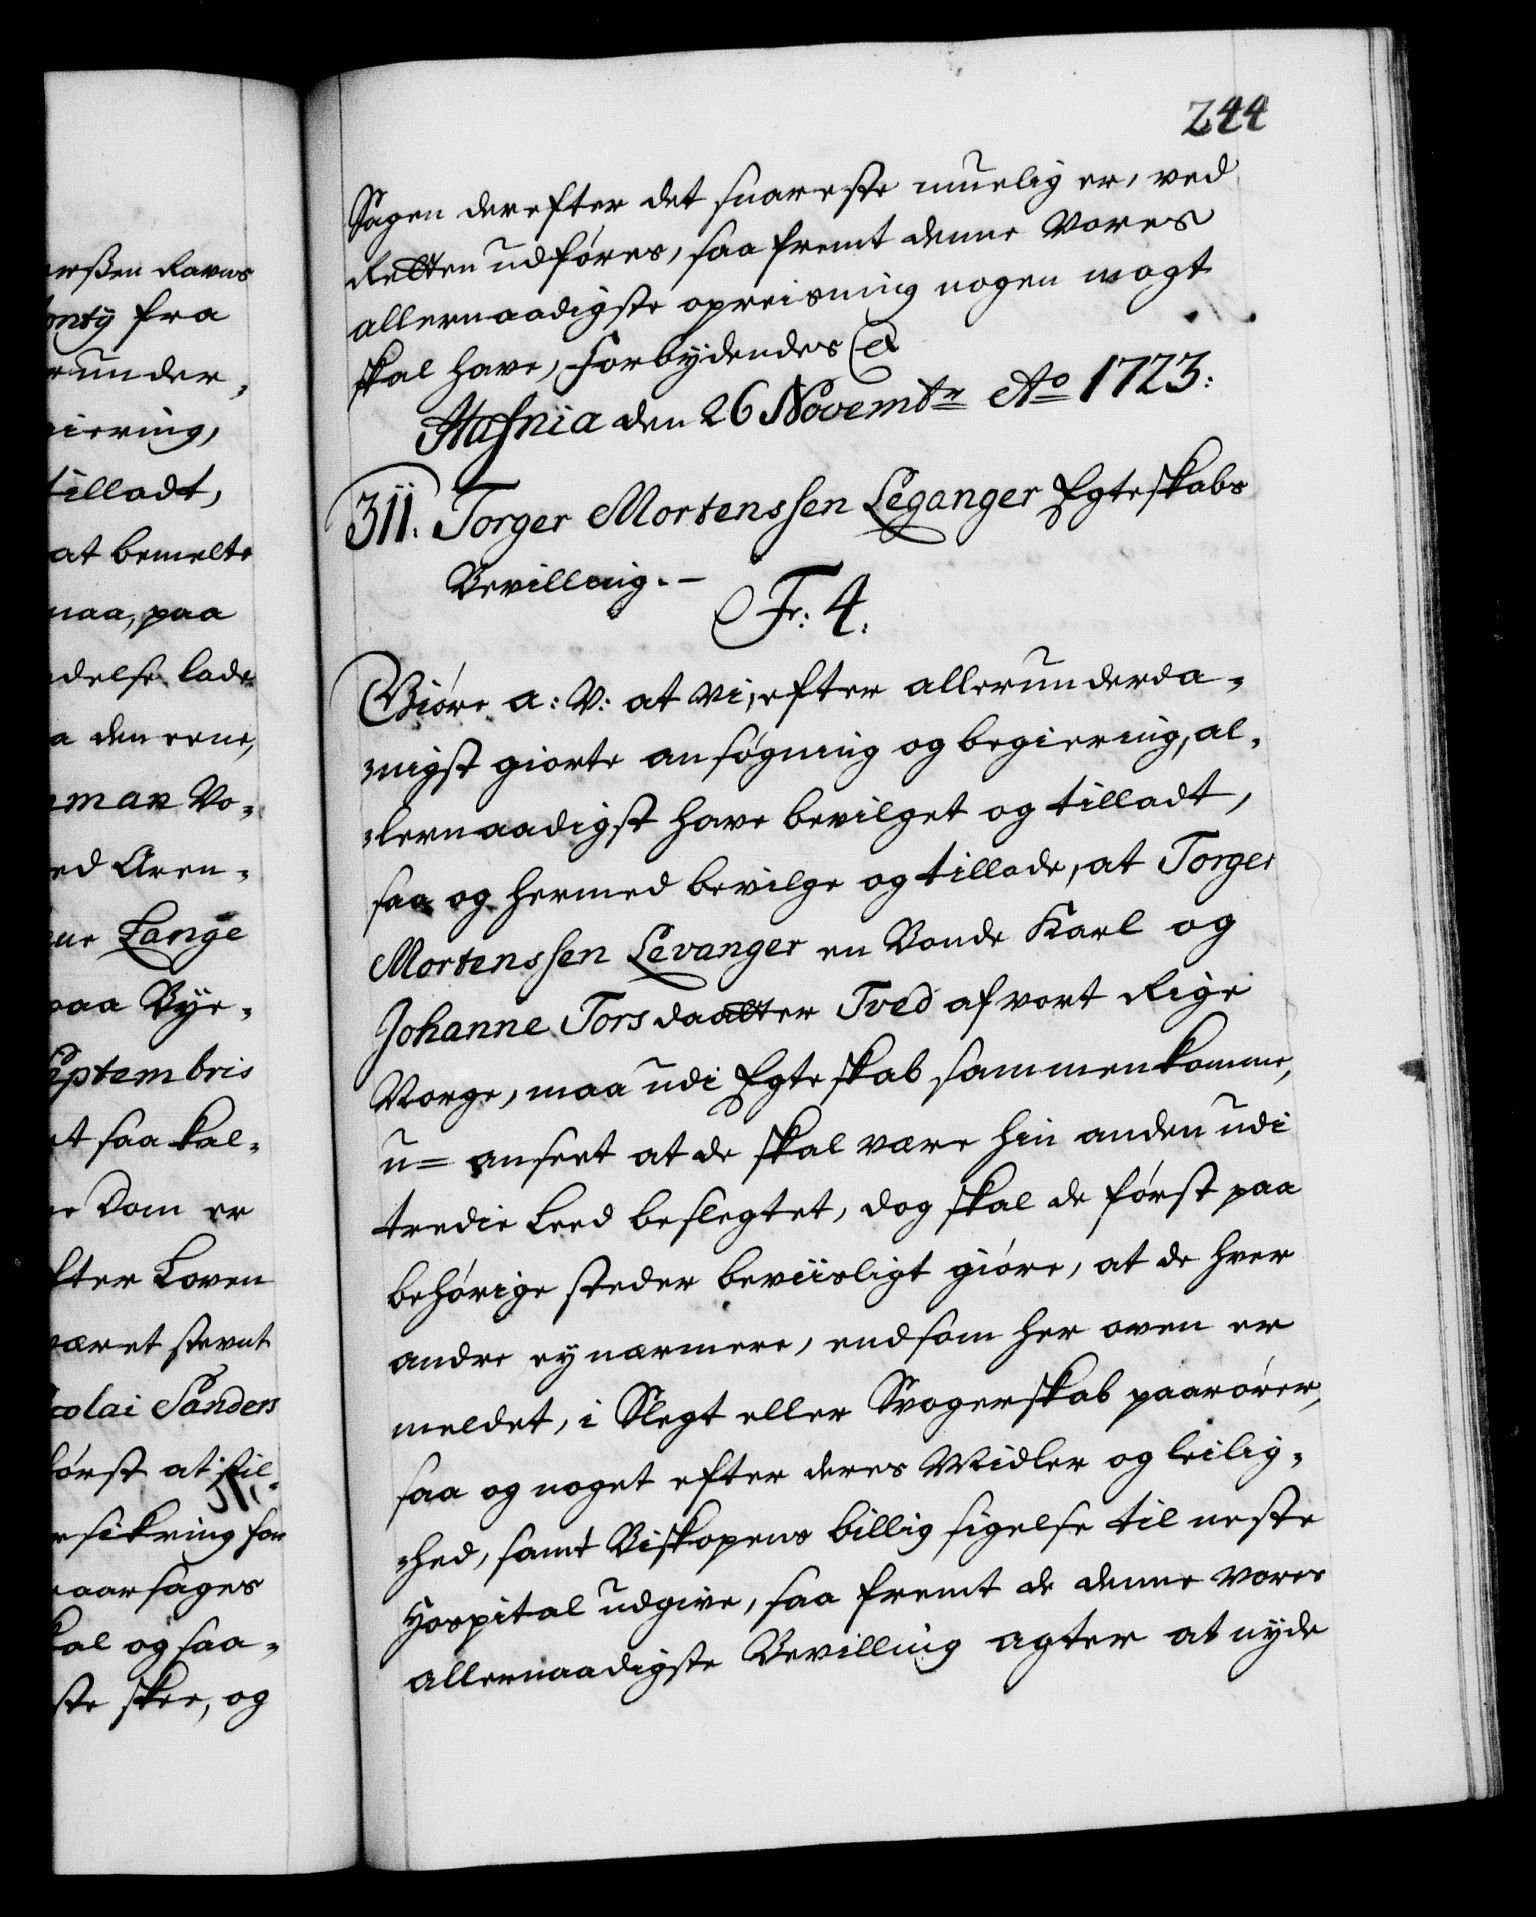 244
Sagen derefter det snareste muelig er, ved
Retten udføres, saa fremt denne Vores
allernaadigste opreisning nogen magt
skal have, Forbydendes &
Hafnia den 26 Novembr Ao 1723:
311. Torger Mortenssen Leganger Egteskabs
Bevilling. –
Fr: 4.
Giøre a: V: at Vi, efter allerunderda-
-nigst giorte ansøgning og begiering, al-
-lernaadigst have bevilget og tilladt,
saa og hermed bevilge og tillade, at Torger
Mortenssen Levanger en Bonde Karl og
Johanne Torsdaatter Tved af vort Rige
Norge, maa udi Egteskab sammenkomme,
u= anseet at de skal være hin anden udi
tredie Leed beslegtet, dog skal de først paa
behørige steder beviisligt giøre, at de hver
andre ey nærmere, end som her oven er
meldet, i Slegt eller Svogerskab paarører,
saa og noget efter deres Midler og leilig-
-hed, samt Biskopens billig sigelse til neste
Hospital udgive, saa fremt de denne vores
allernaadigste Bevilling agter at nyde
erßen Ravns
onty fra
runder,
iering,
tilladt,
at bemelte
maa, paa
delse lade
a den eene,
man Vo-
ed Aren-
ne Lange
paa Bye-
eptembris
et saa kal-
e Dom er
fter Loven
været stevnt
colai Sanders
først at stil-
rsikring for
aarsages
kal og saa-
ste skee, og